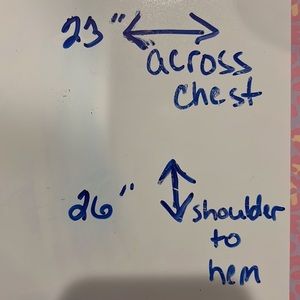 23" ↔
across
chest
26" ↕ shoulder
to
hem